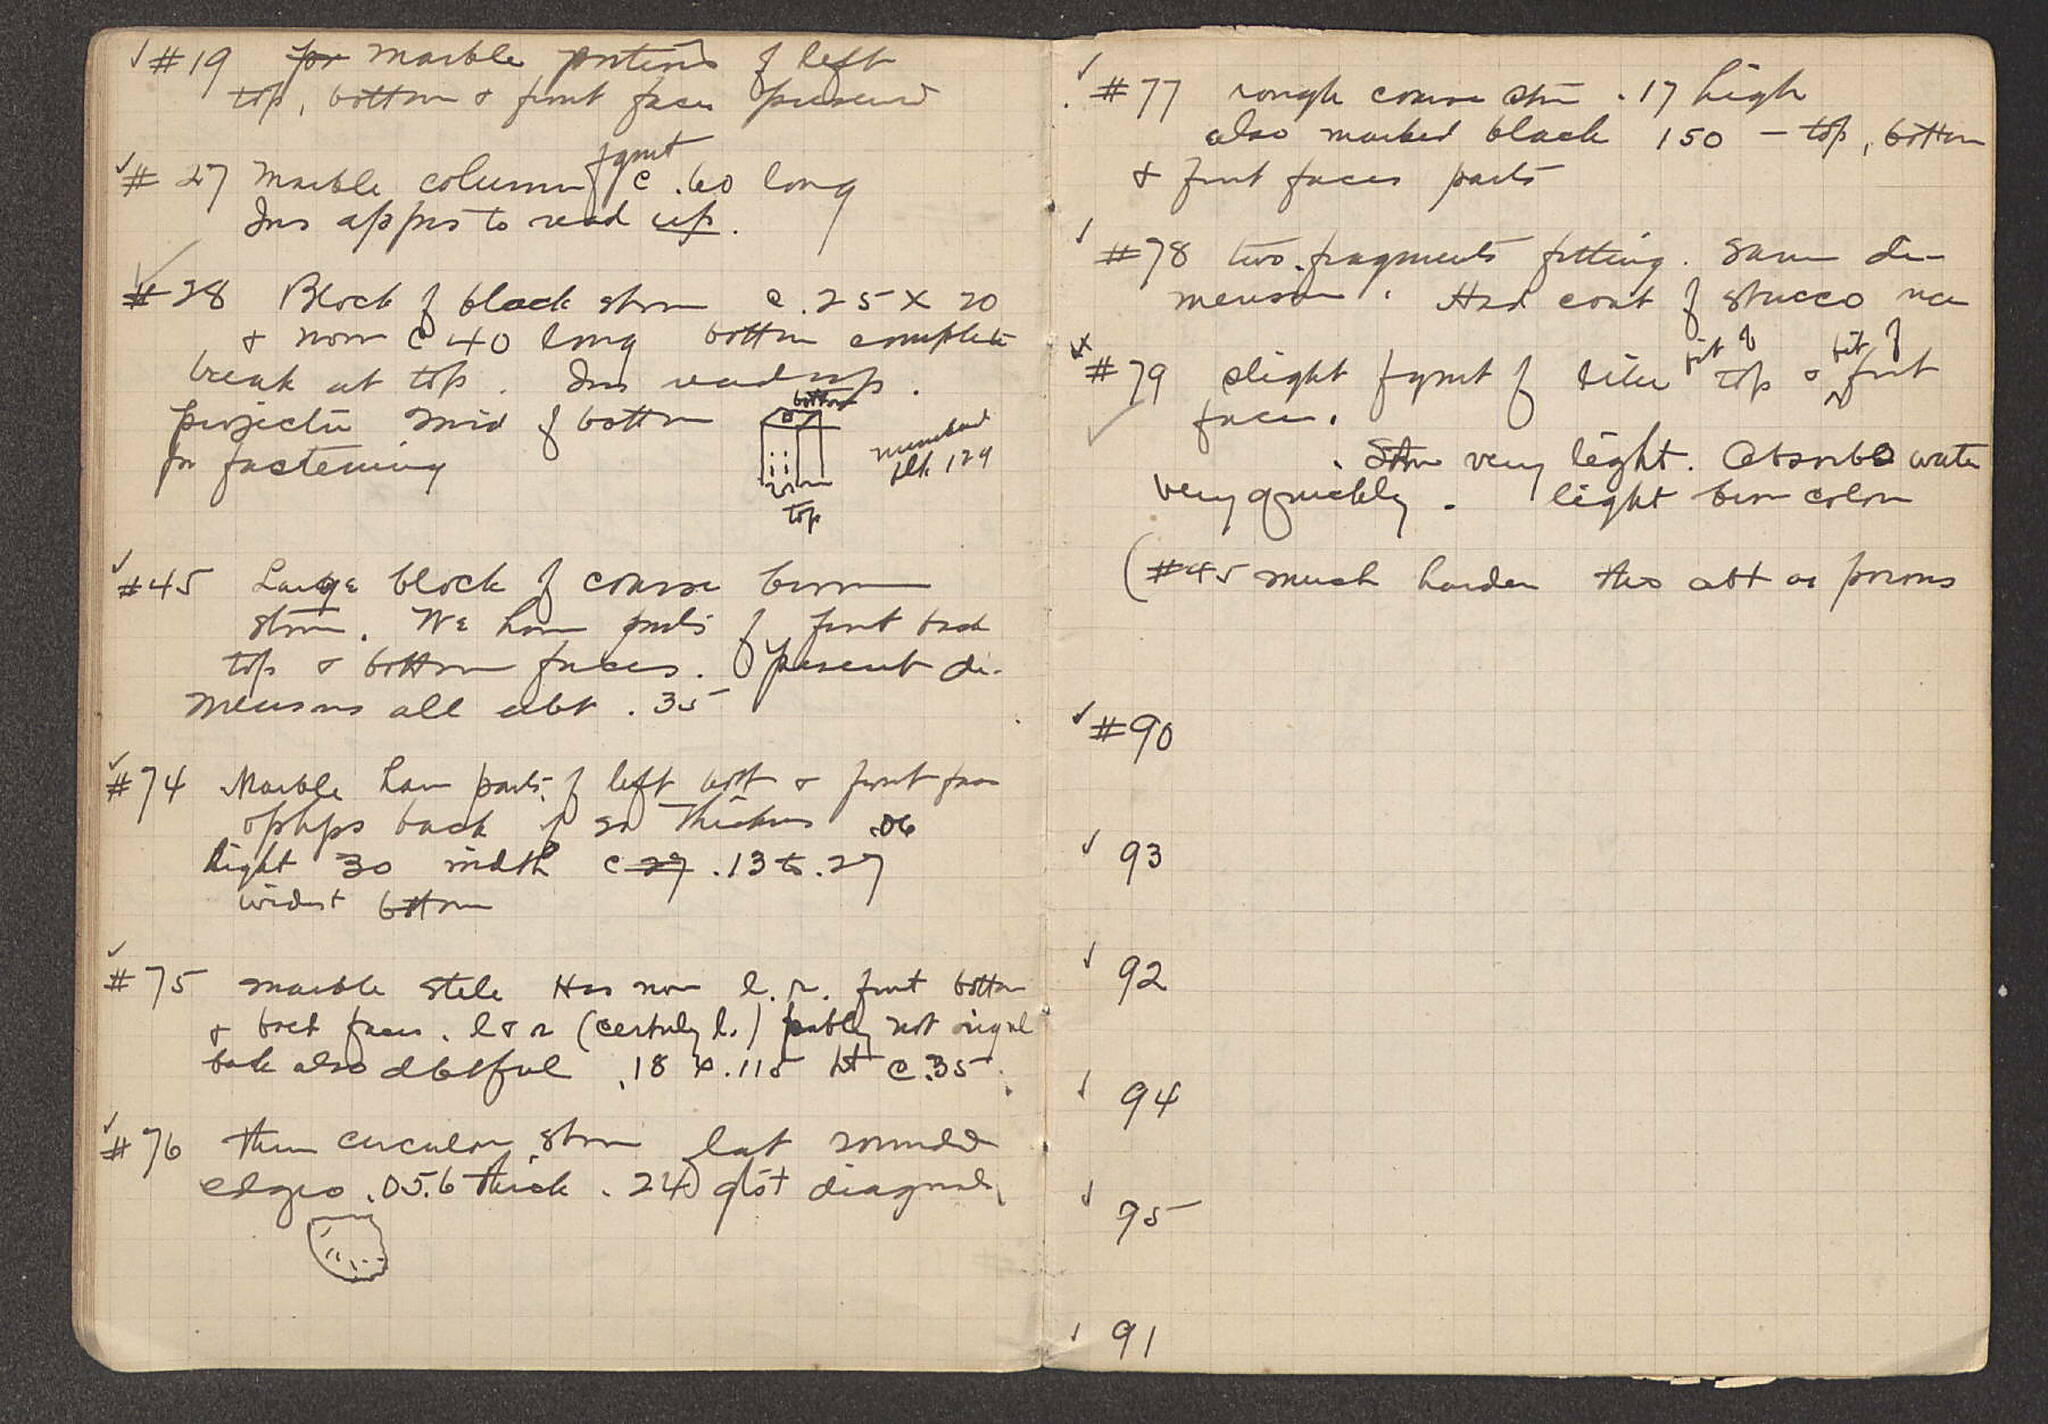 #19 por marble portions of left
top, bottom & front faces preserved
#27 Marble column fgmt c .60 long
Ins apprs to read up.
#28 Block of black stone c .25 X 20
& now c 40 long bottom complete
break at top. Ins reads up.
projection mid of bottom
for fastening
bottom
top
numbered
blk 129
#45 Large block of coarse brown
stone. We have parts of front back
top & bottom faces. present di-
mensns all abt .35
#74 Marble have parts of left bott & front faces
& phps back if so thickns .06
hight 30 width c 27 .13 to .27
widest bottom
#75 marble stele Has now l. r. front bottom
& back faces. l & r (certnly l.) pbably not orignl
back also dbtful .18 x .115 ht c .35
#76 thin circular stone flat rounded
edges .05.6 thick .24 gtst diagnal
#77 rough coarse stone .17 high
also marked black 150 - top, bottom
& front faces parts
#78 two fragments fitting. same di-
mension. Had coat of stucco
#79 slight fgmt of bit of top & bit of front
faces.
Stone very light. Absorbs water
very quickly. light brn color
(#45 much harder tho abt as porous
#90
93
92
94
95
91